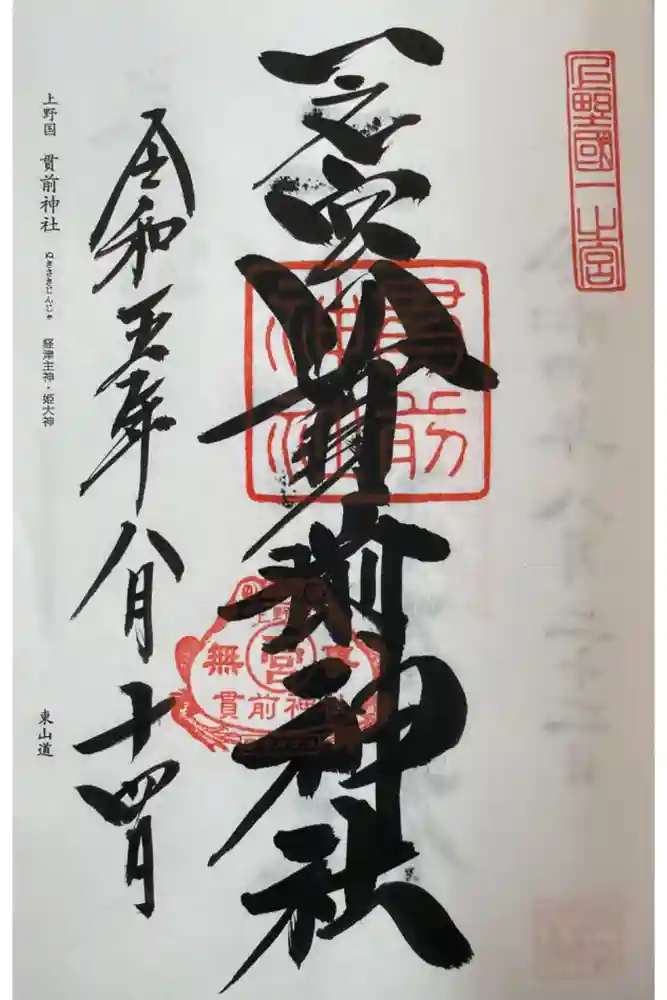 上野國一之宮
一之宮貫前神社
貫前神社
無事
宮
貫前神社
令和五年八月十四日
上野国 貫前神社 ぬきさきじんじゃ 経津主神・姫大神
東山道